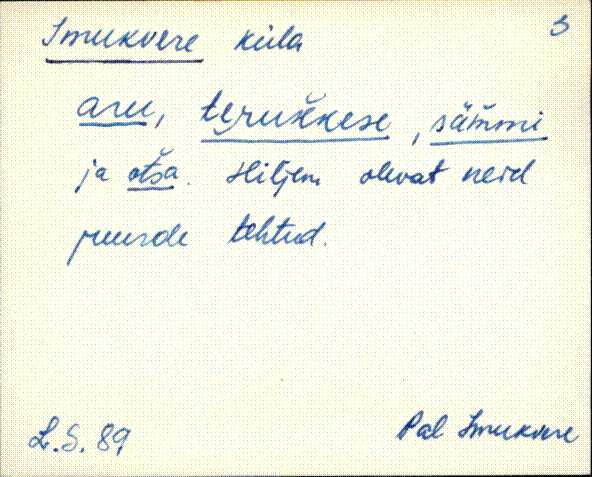 Imukvere küla 3
aru, teruk̆kese, säm̆mi
ja ots̆a. Hiljem olevat neid
juurde tehtud.
L.S. 89 Pal Imukvere